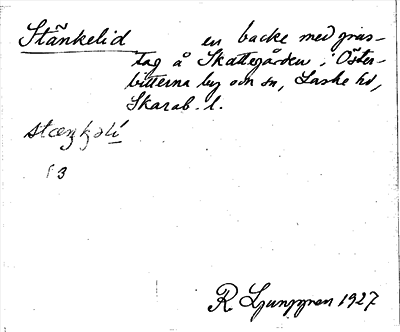 Stänkelid en backe med grus-
tag å Skattegården i Öster-
bitterna by och sn, Laske hd,
Skarab. l.
R Ljunggren 1927